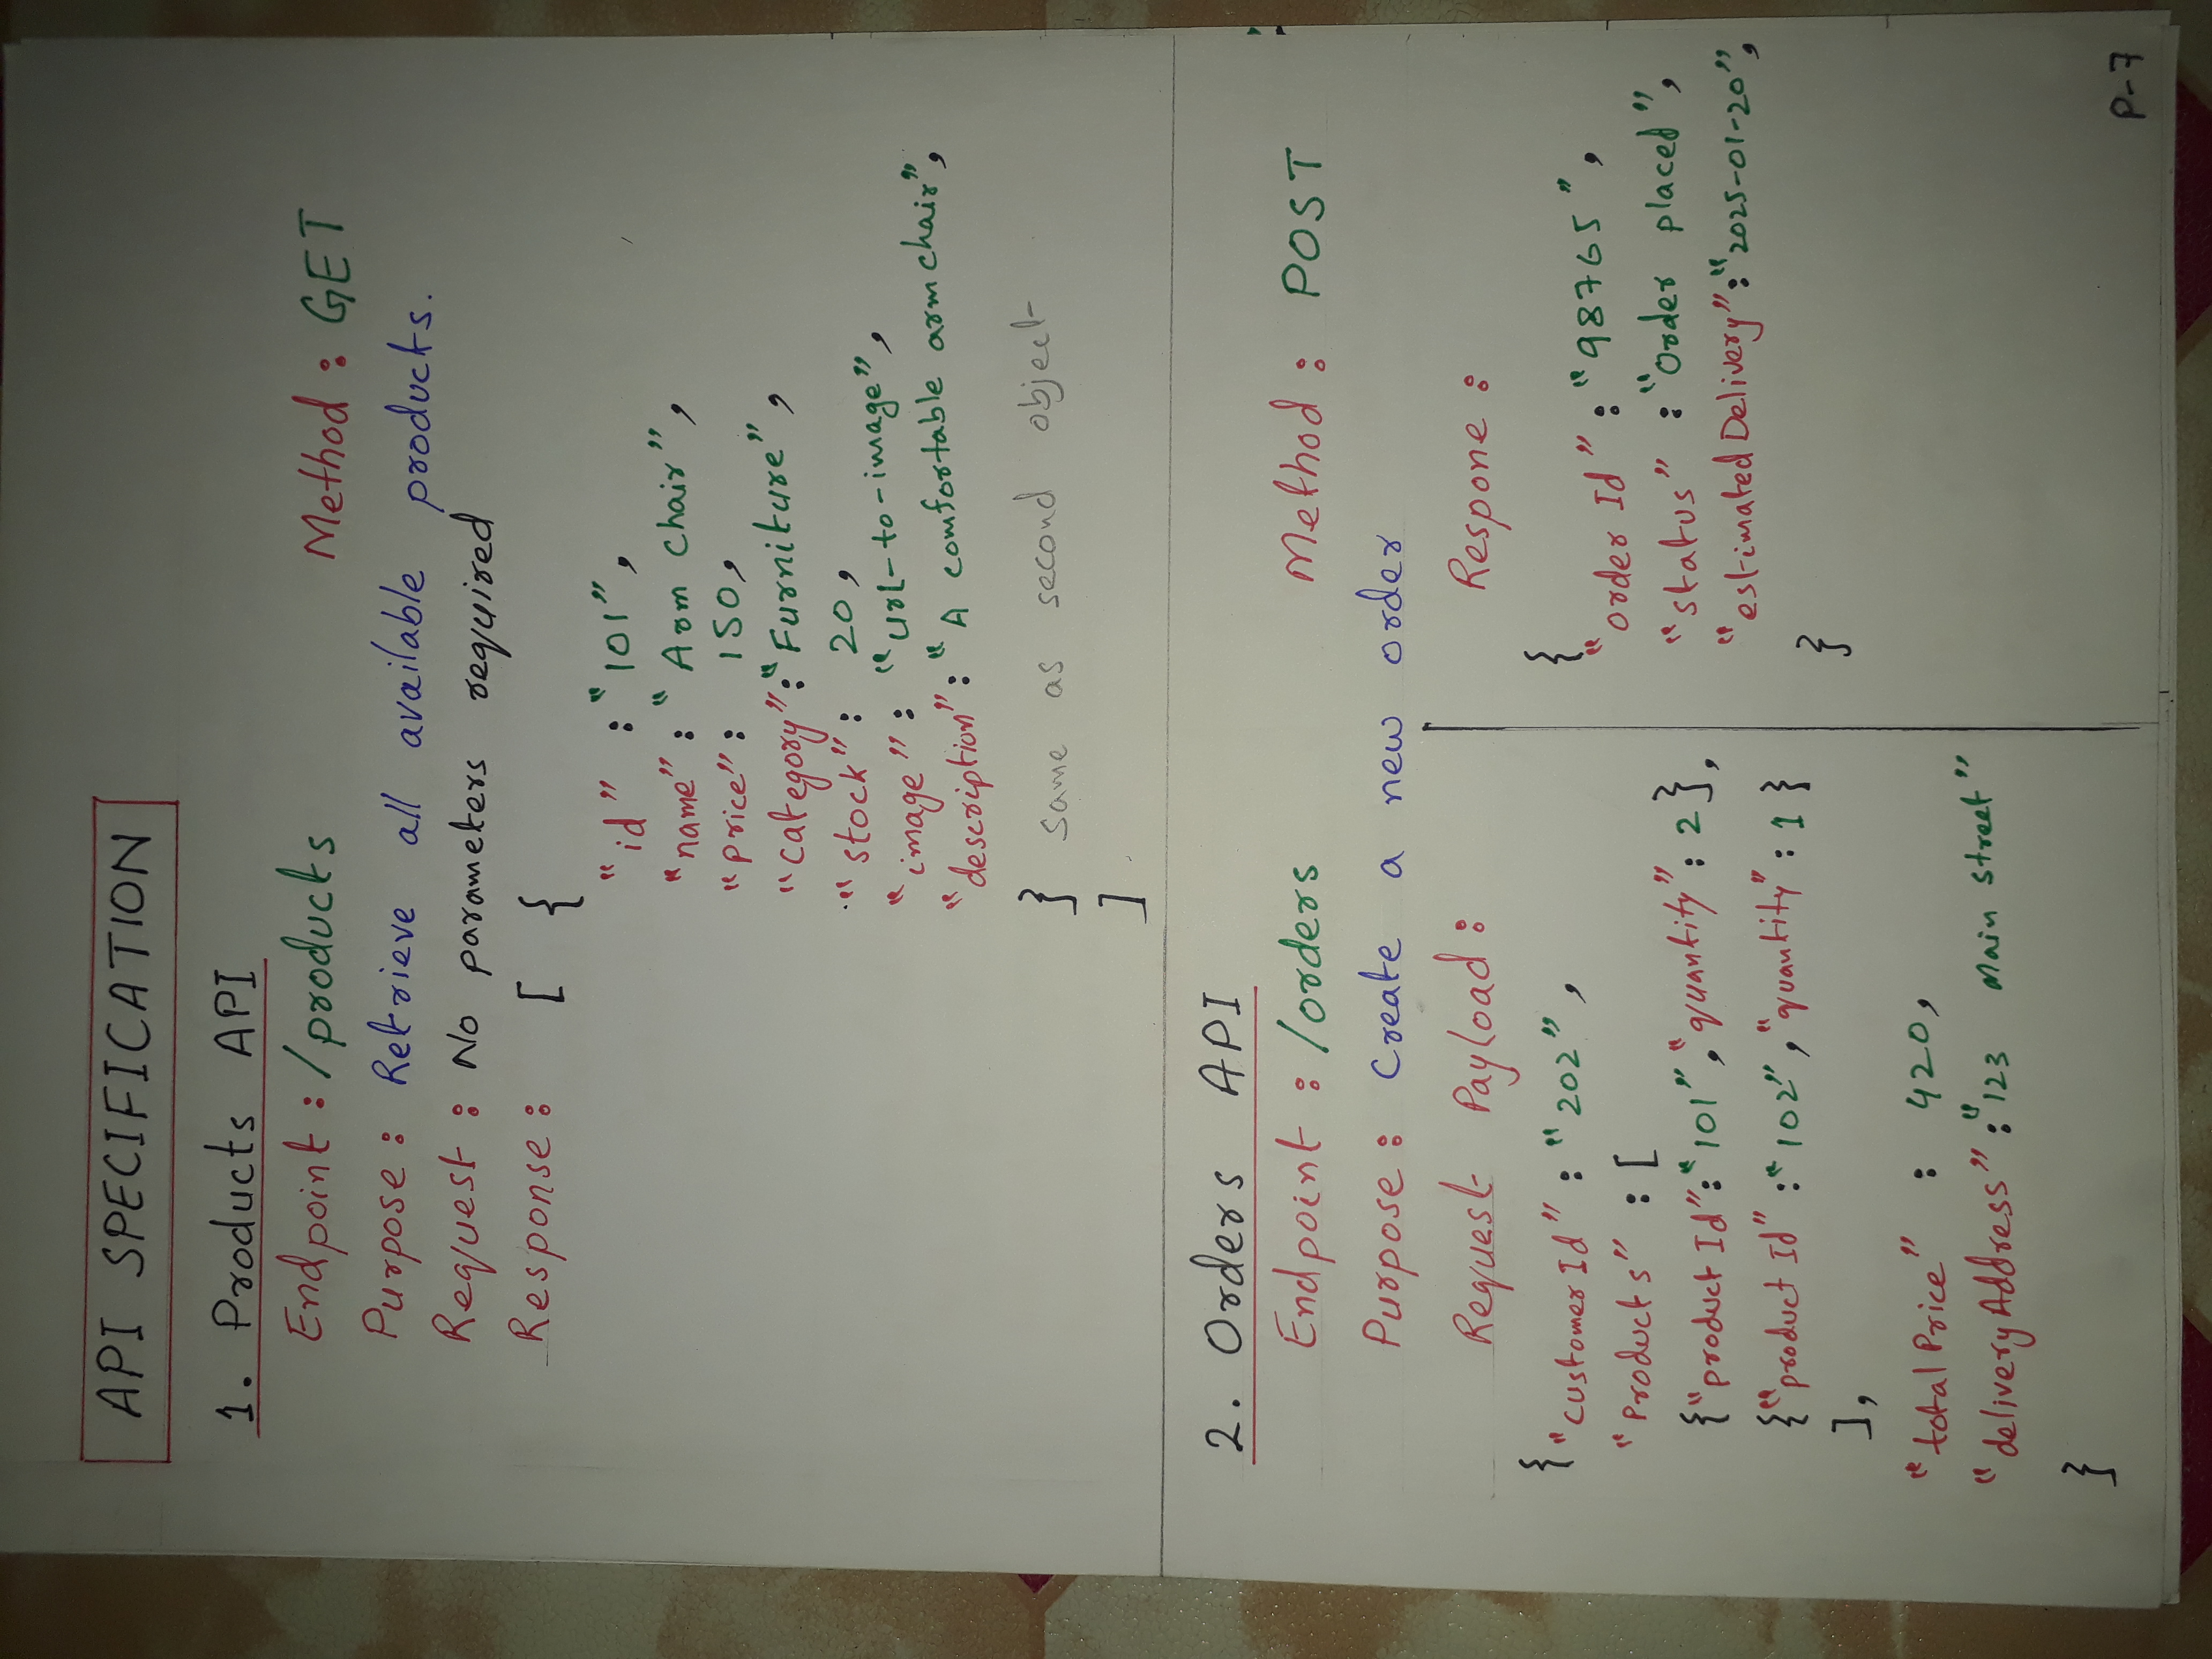 API SPECIFICATION
1. Products API
Endpoint : /products Method : GET
Purpose : Retrieve all available products.
Request : No parameters required
Response : [ {
"id" : "101",
"name" : "Arm Chair",
"Price" : 150,
"Category" : "Furniture",
"stock" : 20,
"image" : "url-to-image",
"description" : "A comfortable arm chair",
} Same as second object
]
2. Orders API
Endpoint : /orders Method : POST
Purpose : Create a new order
Request Payload :
{ "customer Id" : "202",
"Products" : [
{"product Id" : "101", "quantity" : 2},
{"product Id" : "102", "quantity" : 1}
],
"total Price" : 420,
"delivery Address" : "123 Main Street"
}
Respone :
{
"order Id" : "98765",
"status" : "Order placed",
"estimated Delivery" : "2025-01-20",
}
P-7